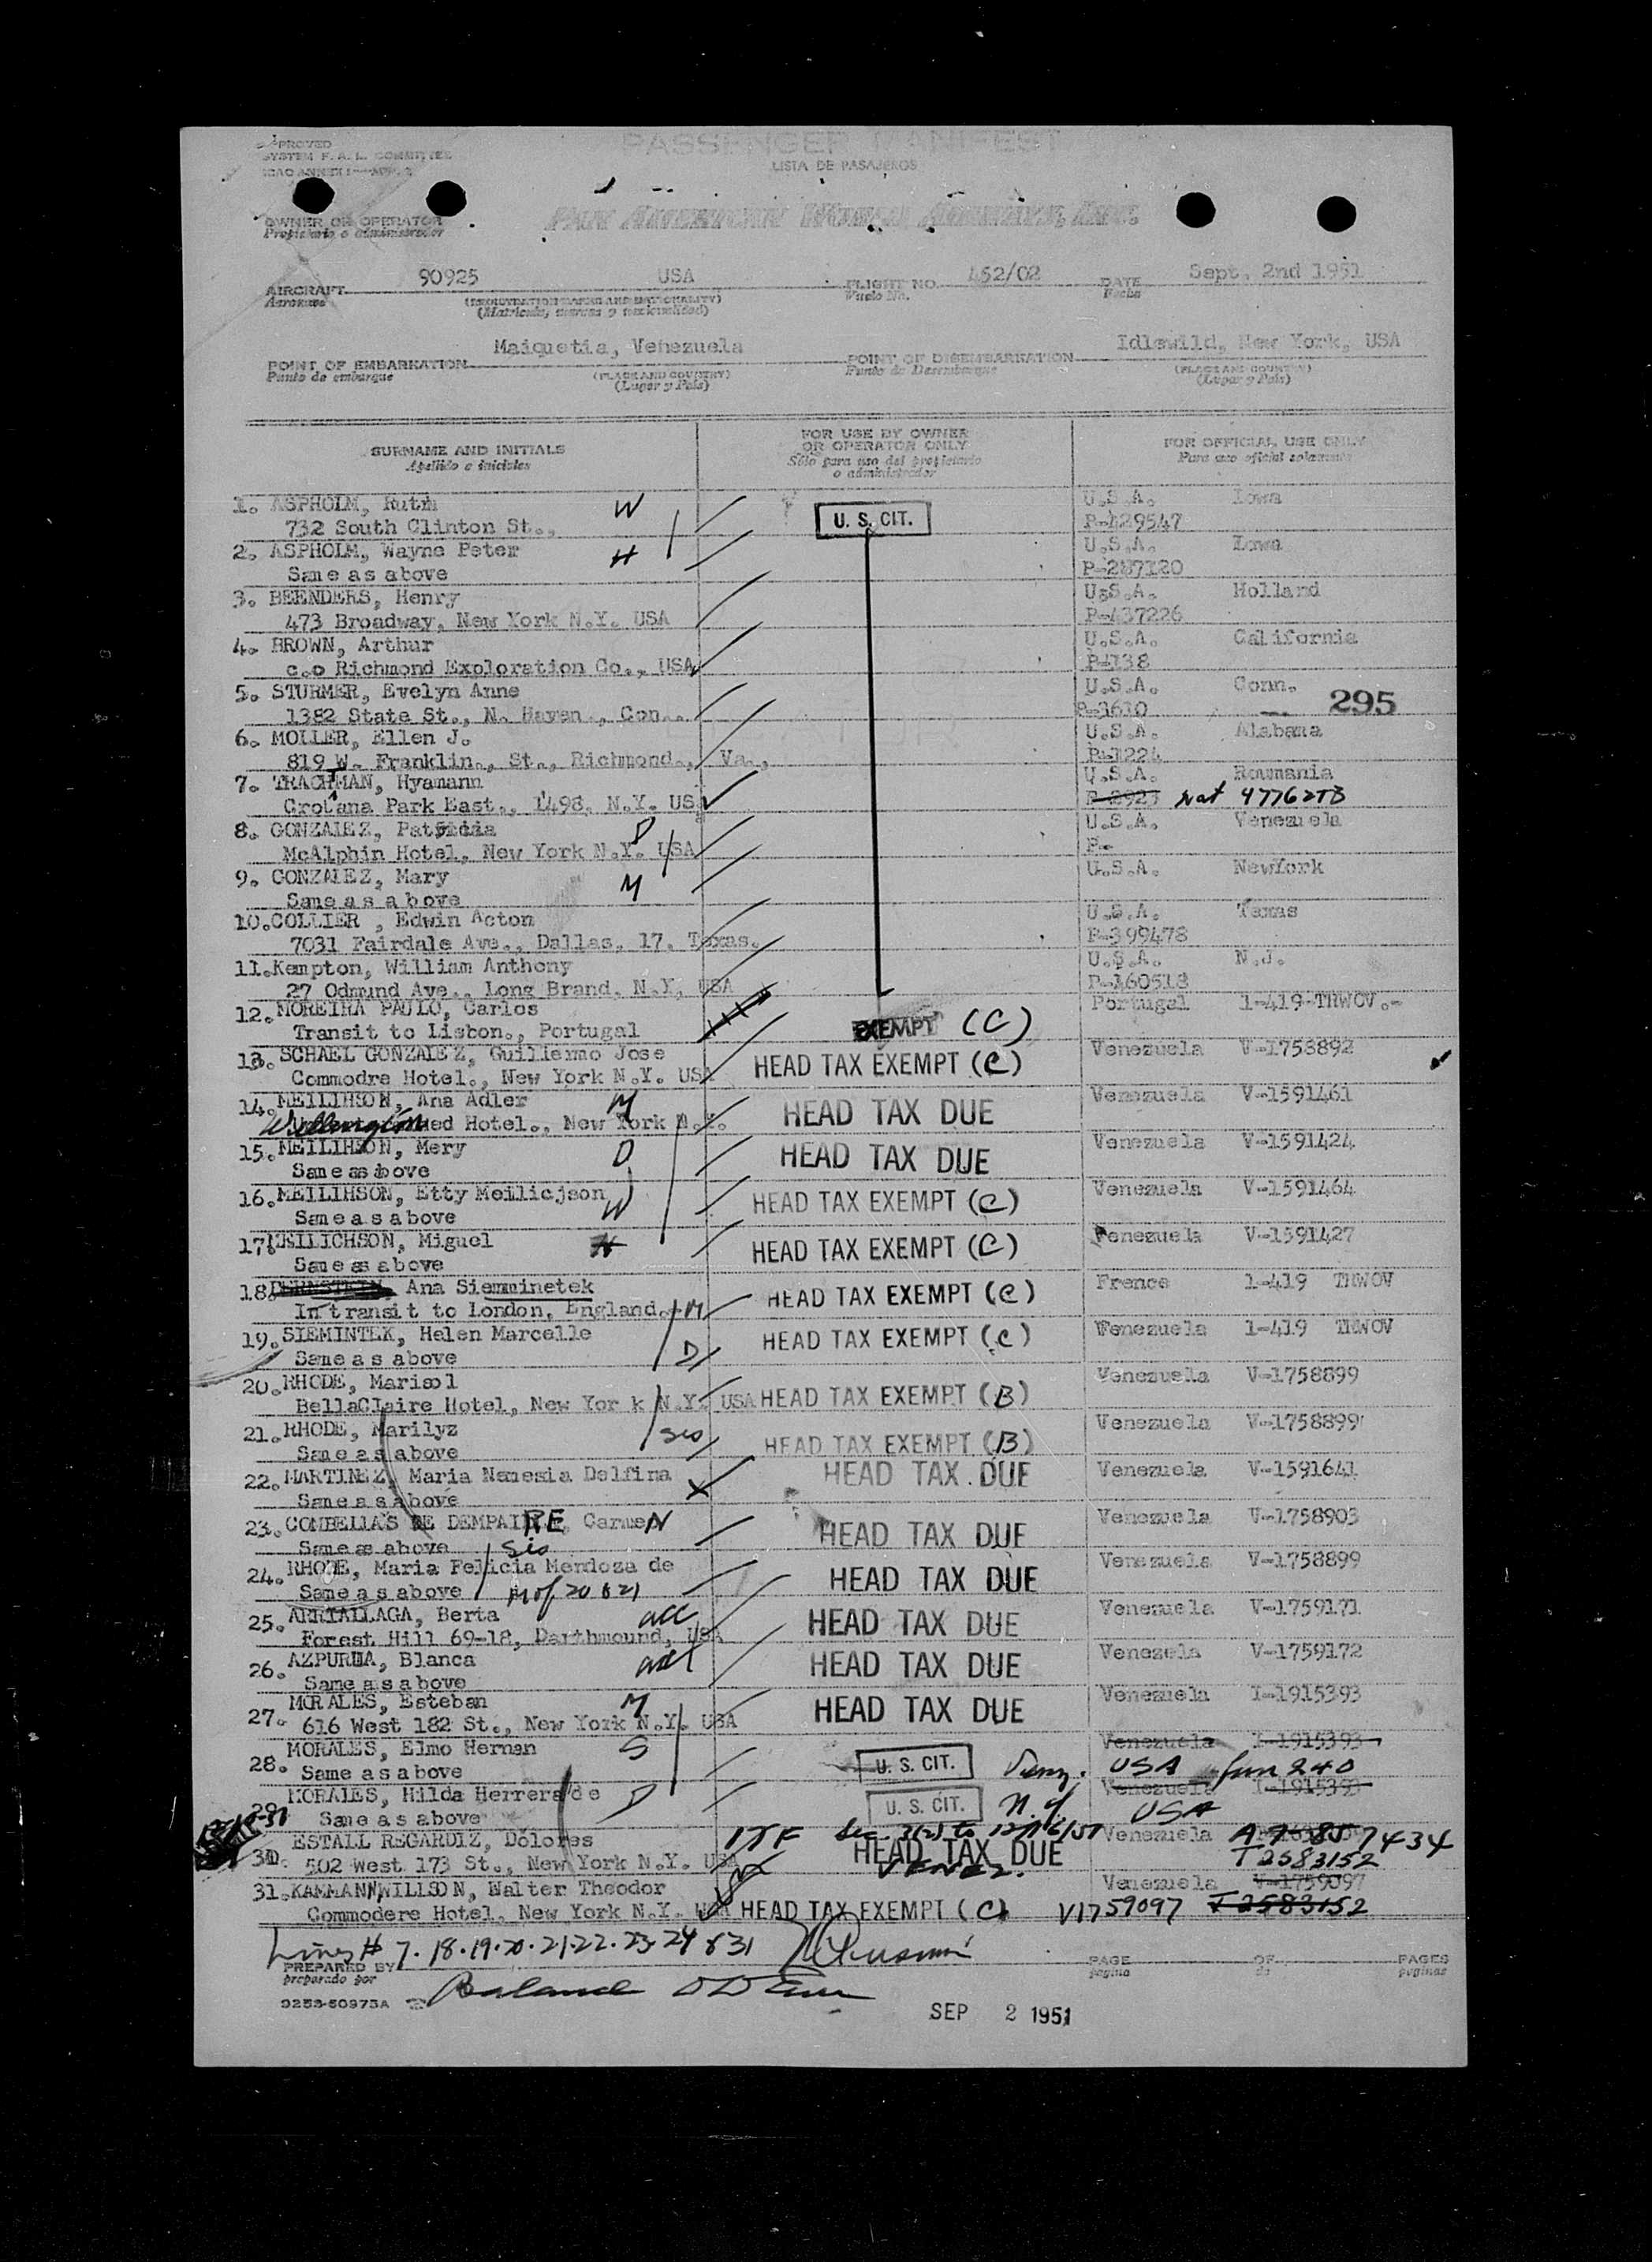 APPROVED
SYSTEM F. A. L. COMMITTEE
ICAO ANNEX
PASSENGER MANIFEST
LISTA DE PASAJEROS
OWNER OR OPERATOR
Propietario o administrador
PAN AMERICAN WORLD AIRWAYS, INC.
AIRCRAFT 90925 USA FLIGHT NO. 452/02 DATE Sept. 2nd 1951
Aeronave (REGISTRATION MARKS AND NATIONALITY) Vuelo No. Fecha
(Matricula, marcas y nacionalidad)
POINT OF EMBARKATION Maiquetia, Venezuela POINT OF DISEMBARKATION Idlewild, New York, USA
Punto de embarque (PLACE AND COUNTRY) Punto de Desembarque (PLACE AND COUNTRY)
(Lugar y País) (Lugar y País)
SURNAME AND INITIALS FOR USE BY OWNER OR OPERATOR ONLY FOR OFFICIAL USE ONLY
Apellido e iniciales Sólo para uso del propietario o administrador Para uso oficial solamente
1. ASPHOLM, Ruth W U.S.A. Iowa
732 South Clinton St., U. S. CIT. P-429547
2. ASPHOLM, Wayne Peter H U.S.A. Iowa
Same as above P-287120
3. BEENDERS, Henry U.S.A. Holland
473 Broadway, New York N.Y. USA P-437226
4. BROWN, Arthur U.S.A. California
c.o Richmond Exploration Co., USA P-138
5. STURMER, Evelyn Anne U.S.A. Conn.
1382 State St., N. Haven., Con.. P-3610 295
6. MOLLER, Ellen J. U.S.A. Alabama
819 W. Franklin., St., Richmond., Va., P-1224
7. TRACHTMAN, Hyamann U.S.A. Roumania
Crotana Park East., 1498, N.Y. US P-2923 Nat 4776278
8. GONZALEZ, Patricia D U.S.A. Venezuela
McAlphin Hotel, New York N.Y. USA P-
9. GONZALEZ, Mary M U.S.A. NewYork
Same as above
10. COLLIER, Edwin Acton U.S.A. Texas
7031 Fairdale Ave., Dallas, 17. Texas. P-399478
11. Kempton, William Anthony U.S.A. N.J.
27 Odmund Ave., Long Brand, N.Y, USA P-160518
12. MOREIRA PAULO, Carlos Portugal 1-419-TRWOV.-
Transit to Lisbon., Portugal EXEMPT (C)
13. SCHAEL GONZALEZ, Guillermo Jose Venezuela V-1758892
Commodre Hotel., New York N.Y. USA HEAD TAX EXEMPT (C)
14. MEILIHSON, Ana Adler M Venezuela V-1591461
Wellington Hotel., New York N.Y. HEAD TAX DUE
15. MEILIHSON, Mery D Venezuela V-1591424
Same as above HEAD TAX DUE
16. MEILIHSON, Etty Meilicjson W Venezuela V-1591464
Same as above HEAD TAX EXEMPT (C)
17. MEILICHSON, Miguel H Venezuela V-1591427
Same as above HEAD TAX EXEMPT (C)
18. Ana Siemminetek France 1-419 TRWOV
In transit to London, England. M HEAD TAX EXEMPT (C)
19. SIEMINTEK, Helen Marcelle Venezuela 1-419 TRWOV
Same as above D HEAD TAX EXEMPT (C)
20. RHODE, Marisol Venezuela V-1758899
BellaClaire Hotel, New York N.Y. USA HEAD TAX EXEMPT (B)
21. RHODE, Marilyz Venezuela V-1758899
Same as above sis HEAD TAX EXEMPT (B)
22. MARTINEZ, Maria Nemesia Delfina Venezuela V-1591641
Same as above X HEAD TAX DUE
23. COMBELLAS DE DEMPAIRE, Carmen Venezuela V-1758903
Same as above sis HEAD TAX DUE
24. RHODE, Maria Felicia Mendoza de Venezuela V-1758899
Same as above M of 20 & 21 HEAD TAX DUE
25. ARRIALLAGA, Berta acc Venezuela V-1759171
Forest Hill 69-18, Darthmound, USA HEAD TAX DUE
26. AZPURUA, Blanca Venezuela V-1759172
Same as above HEAD TAX DUE
27. MORALES, Esteban M Venezuela I-1915393
616 West 182 St., New York N.Y. USA HEAD TAX DUE
28. MORALES, Elmo Hernan S Venezuela I-1915393
Same as above U. S. CIT. USA
29. MORALES, Hilda Herrera de D Venezuela I-1915393
Same as above U. S. CIT. N.Y. USA
30. ESTALL REGARDIZ, Dolores Venezuela A 7 857434
502 West 173 St., New York N.Y. USA HEAD TAX DUE VENEZ. T 2583152
31. KAMMANN, WILLSON, Walter Theodor Venezuela V-1759097
Commodere Hotel, New York N.Y. USA HEAD TAX EXEMPT (C) V1759097 T 2583152
Lines # 7.18.19.20.21.22.23.24 & 31
PREPARED BY PAGE OF PAGES
preparado por pagina de paginas
9253-50973A
SEP 2 1951